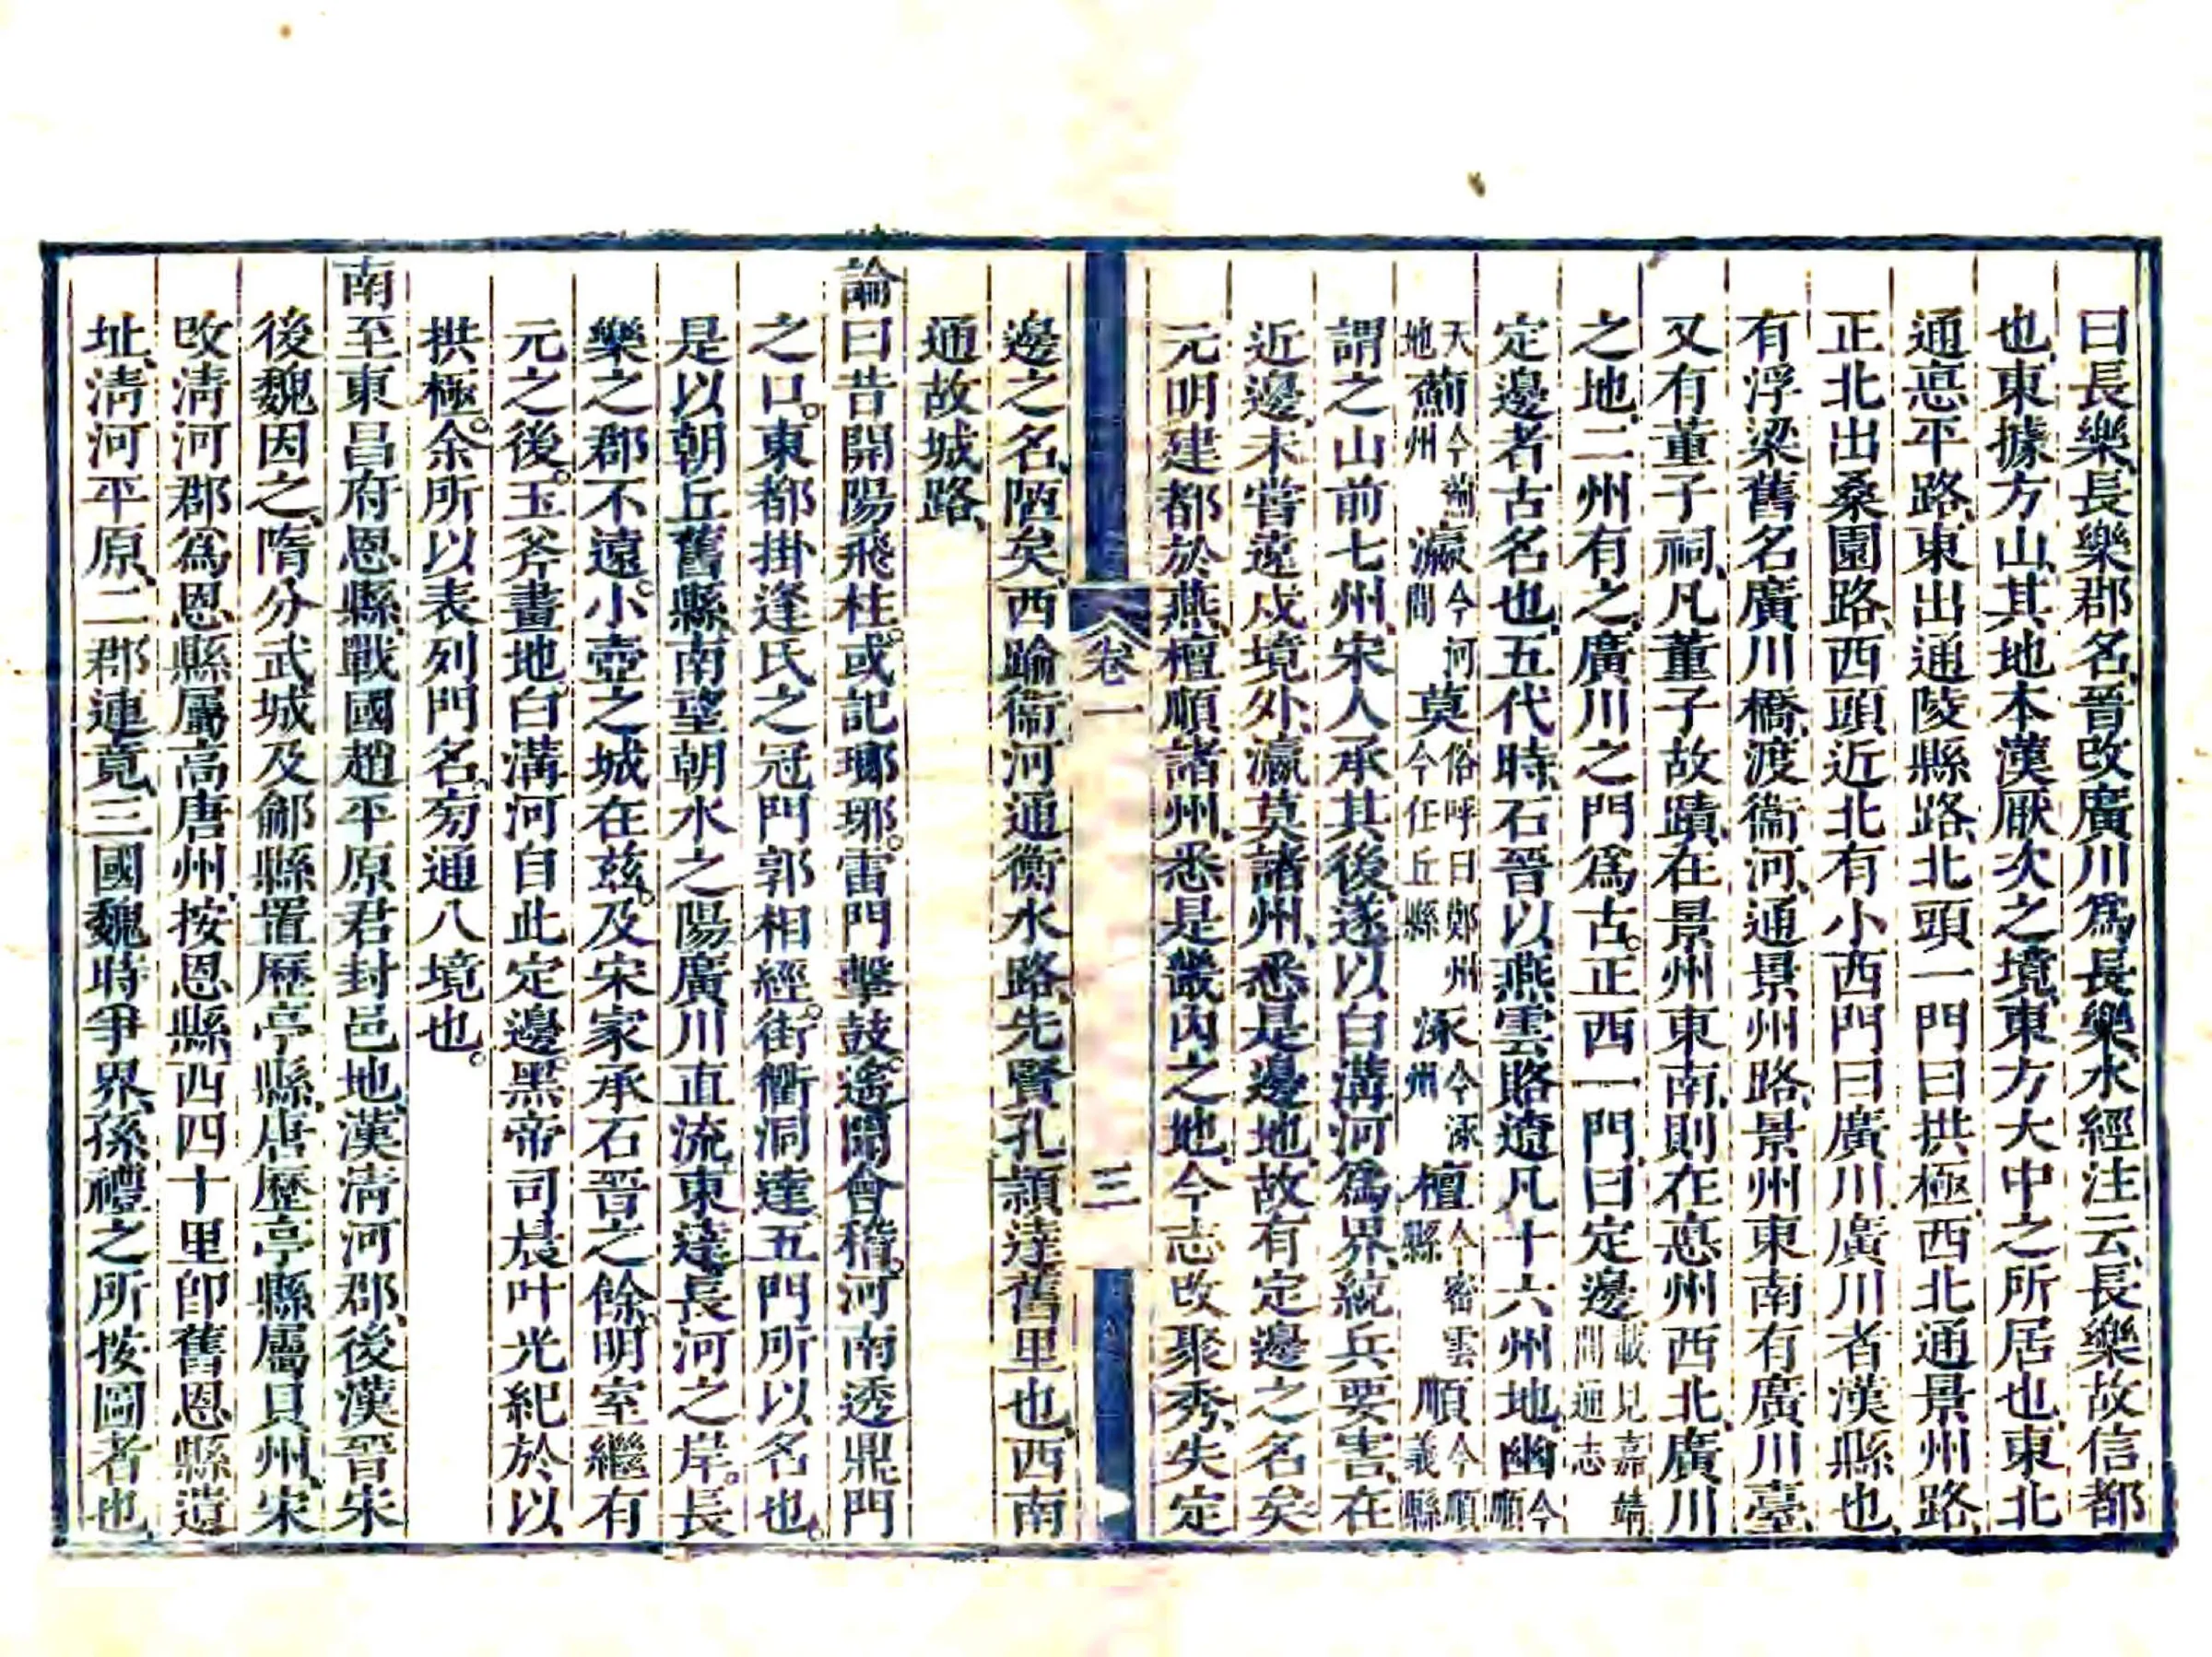 曰長樂、長樂郡名、晉改廣川爲長樂、水經注云、長樂故信都
也、東據方山、其地本漢厭次之境、東方大中之所居也、東北
通惪平路、東出通陵縣路、北頭一門曰拱極、西北通景州路、
正北出桑園路、西頭近北有小西門曰廣川、廣川者漢縣也、
有浮梁舊名廣川橋、渡衞河、通景州路、景州東南有廣川臺、
又有董子祠、凡董子故蹟、在景州東南、則在惪州西北、廣川
之地、二州有之、廣川之門爲古。正西一門、曰定邊載見嘉靖間通志
定邊者古名也、五代時、石晉以燕雲賂遼凡十六州地、幽今順
天地薊今薊州瀛今河間莫俗呼曰鄚州今任丘縣涿今涿州檀今密雲縣順今順義縣
謂之山前七州、宋人承其後、遂以白溝河爲界、統兵要害、在
近邊、未嘗遠戍境外、瀛莫諸州、悉是邊地、故有定邊之名矣。
元明建都於燕、檀順諸州、悉是畿內之地、今志改聚秀、失定
卷一
三
邊之名、陋矣、西踰衞河通衡水路、先賢孔穎達舊里也、西南
通故城路、
論曰昔開陽飛柱。或記瑯琊。雷門擊鼓。遙聞會稽。河南透鼎門
之口。東都掛逢氏之冠門郭相經。街衢洞達、五門所以名也。
是以朝丘舊縣、南望朝水之陽廣川直流、東達長河之岸。長
樂之郡不遠。小壺之城在茲。及宋家承石晉之餘。明室繼有
元之後。玉斧畫地、白溝河自此定邊。黑帝司晨、叶光紀於以
拱極。余所以表列門名。旁通八境也。
南至東昌府恩縣、戰國趙平原君封邑地、漢淸河郡、後漢晉宋
後魏因之、隋分武城及鄃縣置歷亭縣、唐歷亭縣屬貝州、宋
改淸河郡爲恩縣屬高唐州、按恩縣、西四十里卽舊恩縣遺
址、淸河平原、二郡連竟、三國魏時爭界、孫禮之所按圖者也、